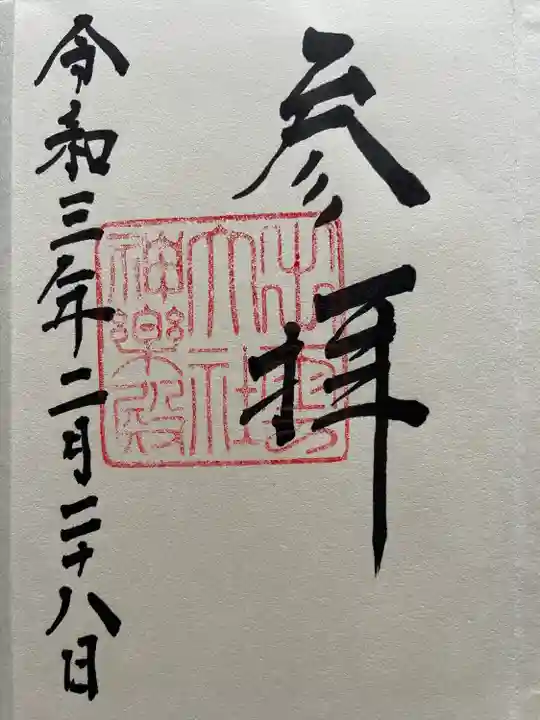 参拝
出雲
大社
神楽殿
令和三年二月二十八日